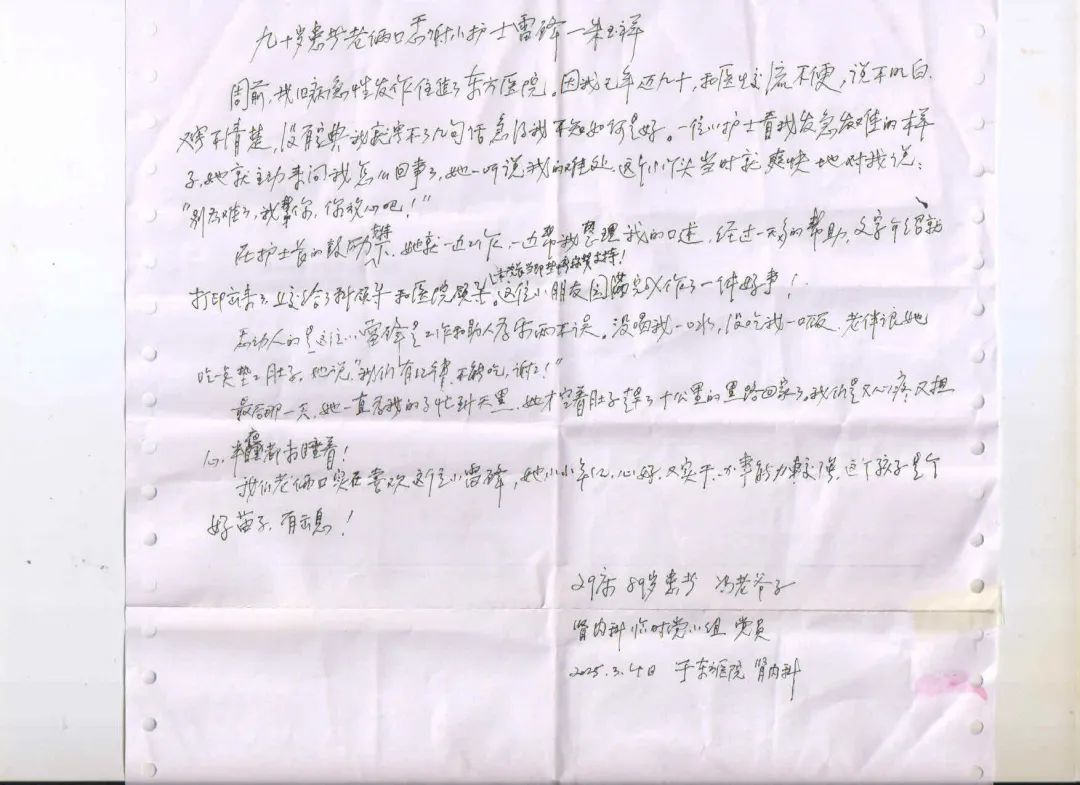 九十岁患者老俩口感谢小护士雷锋一朱玉祥
周前,我旧病急性发作住进了东方医院。因我已年迈九十,和医生交流不便,说不明白.
又写不清楚,没有字典我就写不了几句话急得我不知如何是好。一位小护士看我发急发难的样
子,她就主动来问我怎么回事了,她一听说我的难处,这个小丫头当时就爽快地对我说:
"别为难了,我帮你,你放心吧!"
在护士长的鼓励支持下,她就一边工作,一边帮我整理我的口述,经过一天多的帮助,文字介绍就
打印出来了上交给了科领导和医院领导,这位小朋友圆满完成作了一件好事!
感动人的是这位小雷锋是工作和助人为乐两不误。没喝我一口水,没吃我一口饭.老伴很她
吃点垫垫肚子,她说"我们有纪律,不能吃,谢谢!"
最后那一天,她一直为我的事忙到天黑,她才空着肚子赶了十公里的黑路回家了。我们是又心疼又担
心,半宿都未睡着!
我们老俩口实在喜欢这位小雷锋,她小小年纪,心好,又实干,办事能力较强,这个孩子是个
好苗子,有出息!
29床 89岁患者 冯老爷子
肾内科临时党小组 党员
2025.3.4日 于东方医院 肾内科